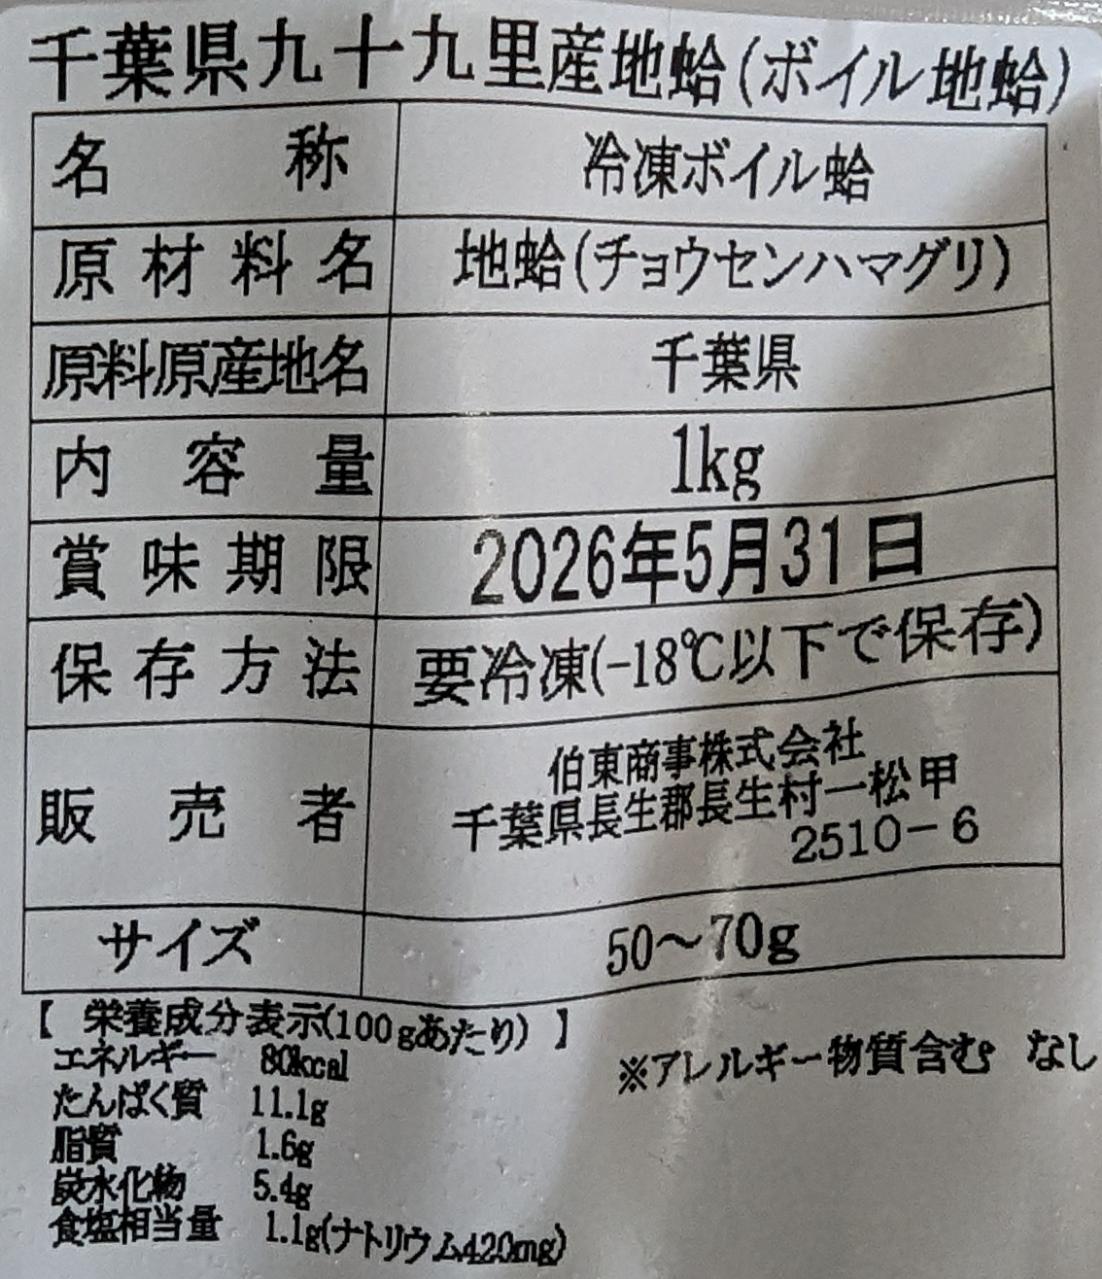 千葉県九十九里産地蛤(ボイル地蛤)
名称 冷凍ボイル蛤
原材料名 地蛤(チョウセンハマグリ)
原料原産地名 千葉県
内容量 1kg
賞味期限 2026年5月31日
保存方法 要冷凍(-18℃以下で保存)
販売者 伯東商事株式会社
千葉県長生郡長生村一松甲
2510-6
サイズ 50~70g
【 栄養成分表示(100gあたり) 】
エネルギー 80kcal
たんぱく質 11.1g
脂質 1.6g
炭水化物 5.4g
食塩相当量 1.1g(ナトリウム420mg)
※アレルギー物質含む なし